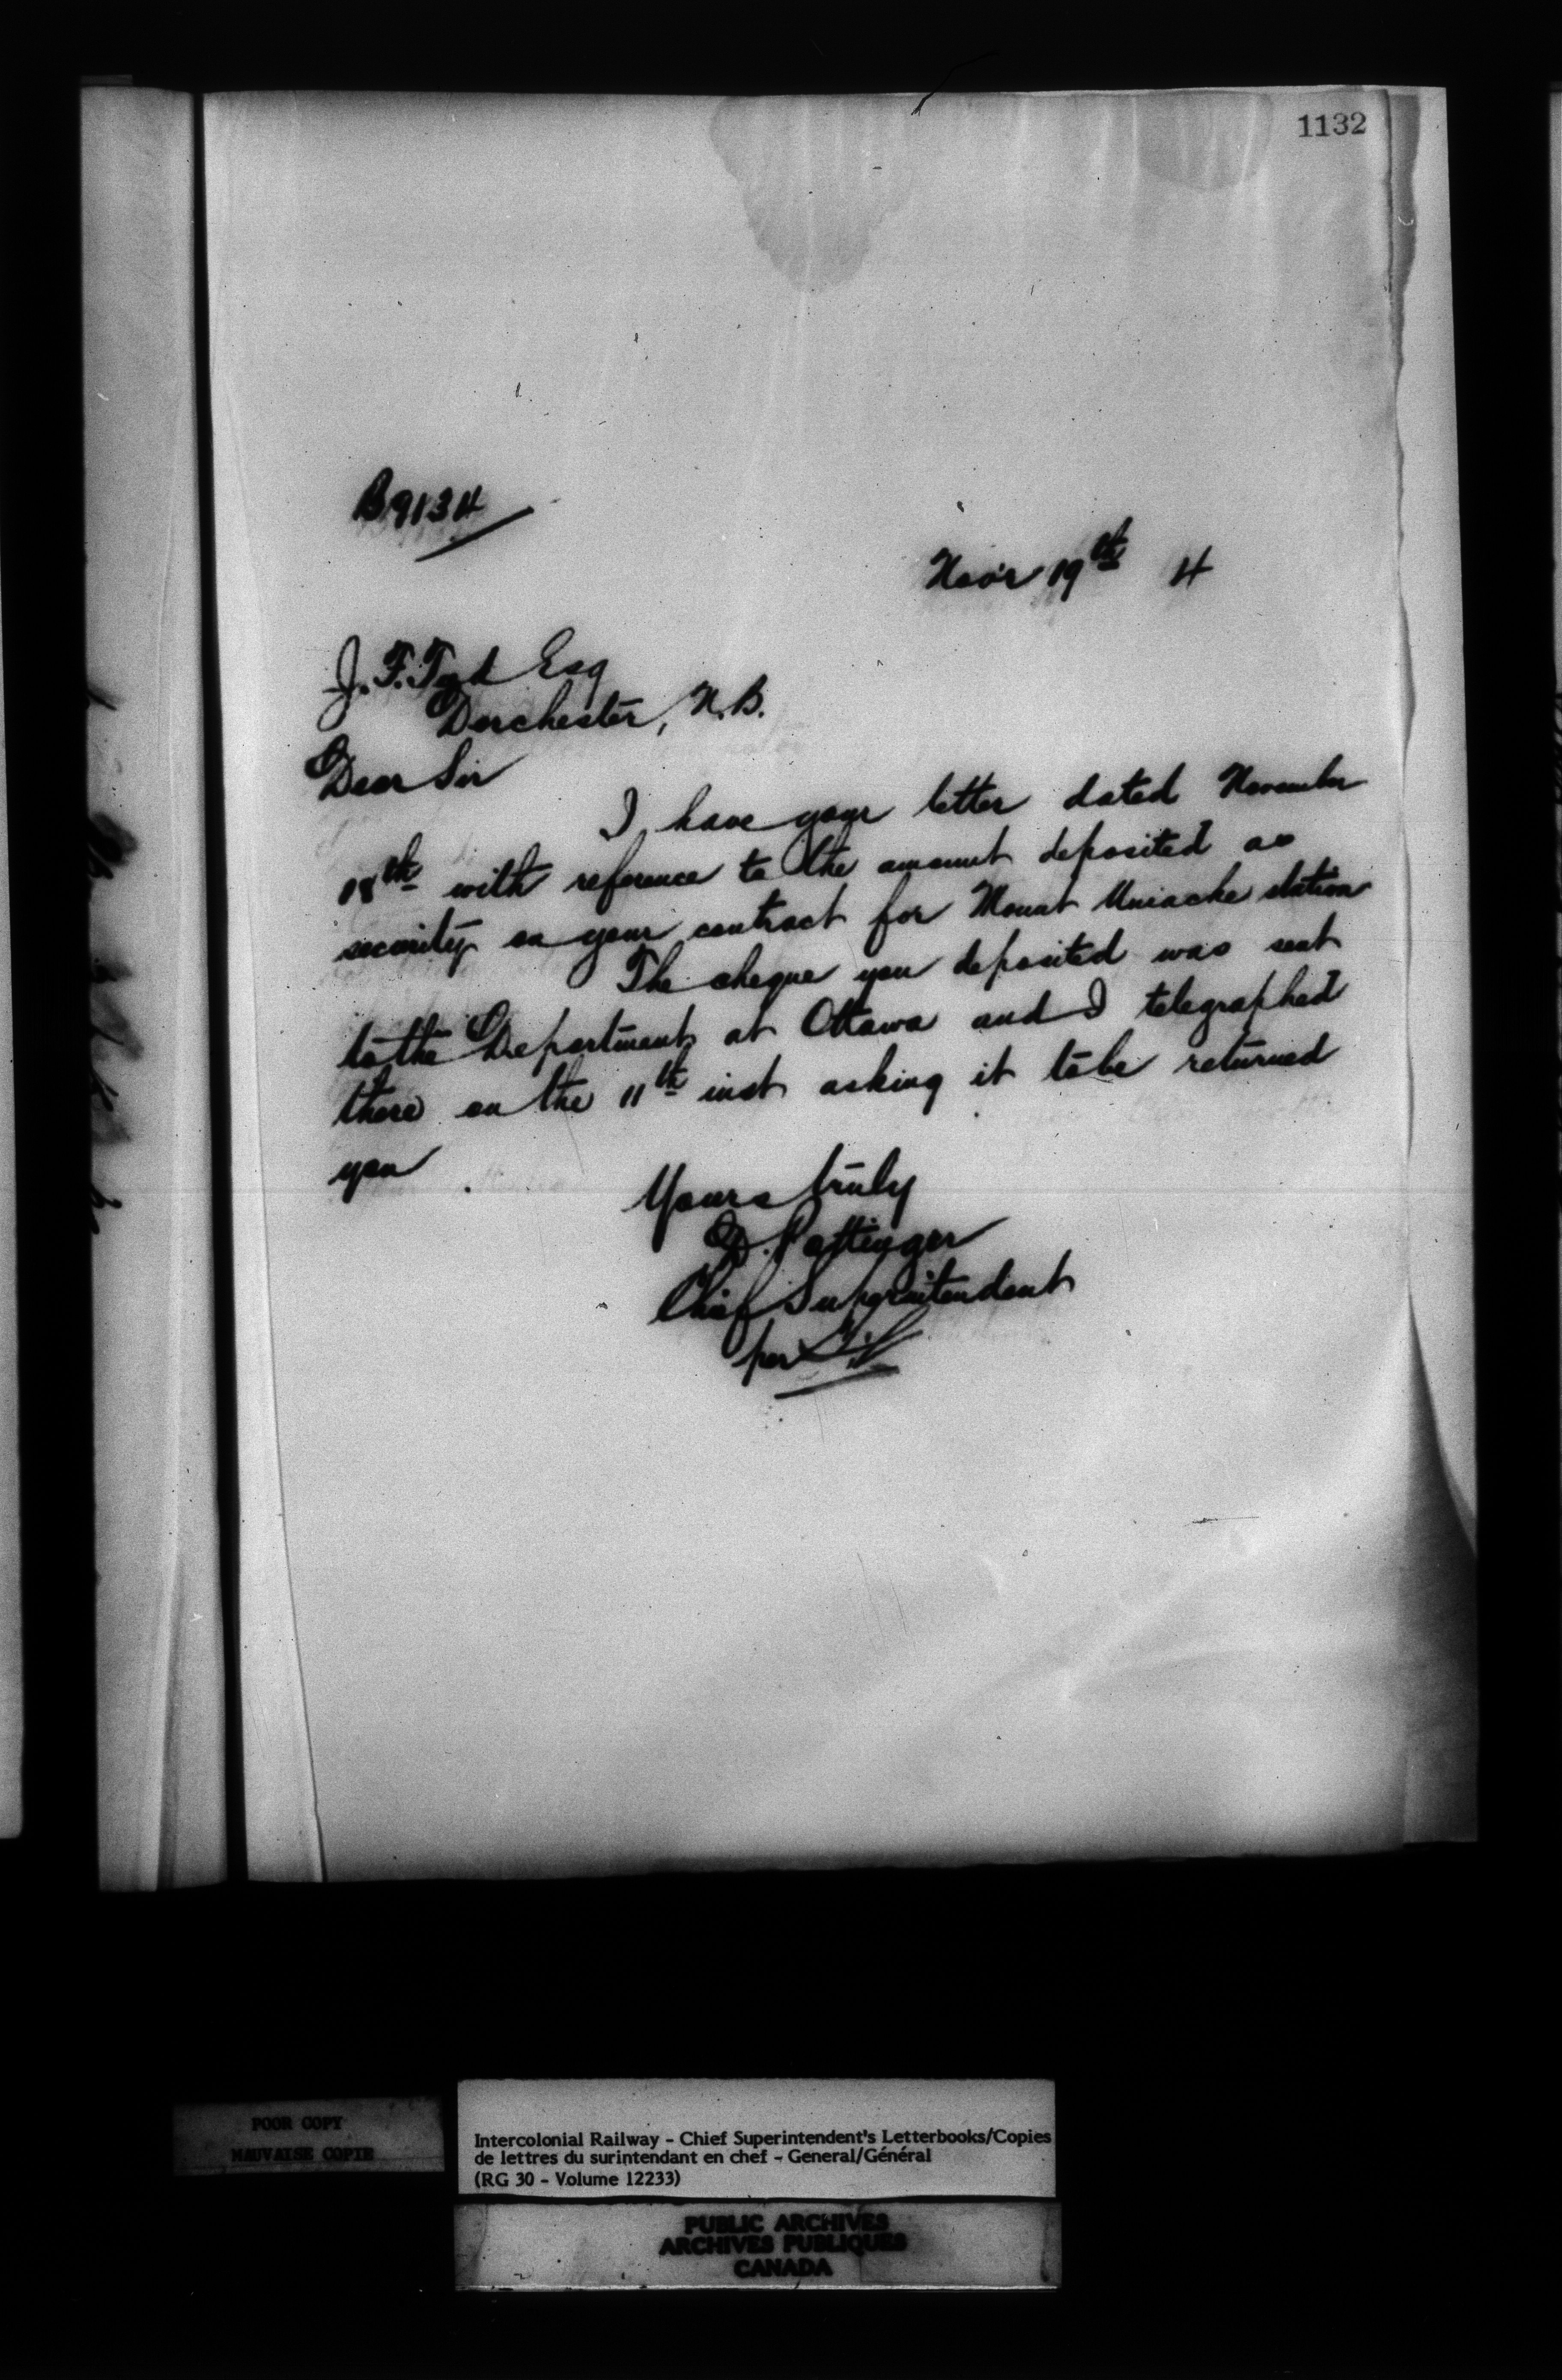 1132
B9134
Nov'r 19th 4
J. F. Esq
Dorchester, N.B.
Dear Sir
I have your letter dated November
18th with reference to the amount deposited as
security on your contract for Mount Uniacke station
The cheque you deposited was sent
to the Department at Ottawa and I telegraphed
there on the 11th inst asking it to be returned
you
Yours truly
D. Pottinger
Chief Superintendent
per
POOR COPY
MAUVAISE COPIE
Intercolonial Railway - Chief Superintendent's Letterbooks/Copies
de lettres du surintendant en chef - General/Général
(RG 30 - Volume 12233)
PUBLIC ARCHIVES
ARCHIVES PUBLIQUES
CANADA